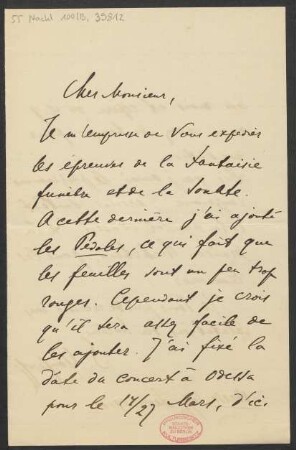 55 Nachl 100/B, 39812
Cher Monsieur,
Je m'empresse de Vous expédier
les épreuves de la Fantaisie
funèbre et de la Sonate.
A cette dernière j'ai ajouté
les Pédales, ce qui fait que
les feuilles sont un peu trop
rouges. Cependant je crois
qu'il sera assez facile de
les ajouter. J'ai fixé la
date du concert à Odessa
pour le 17/27 Mars, d'ici